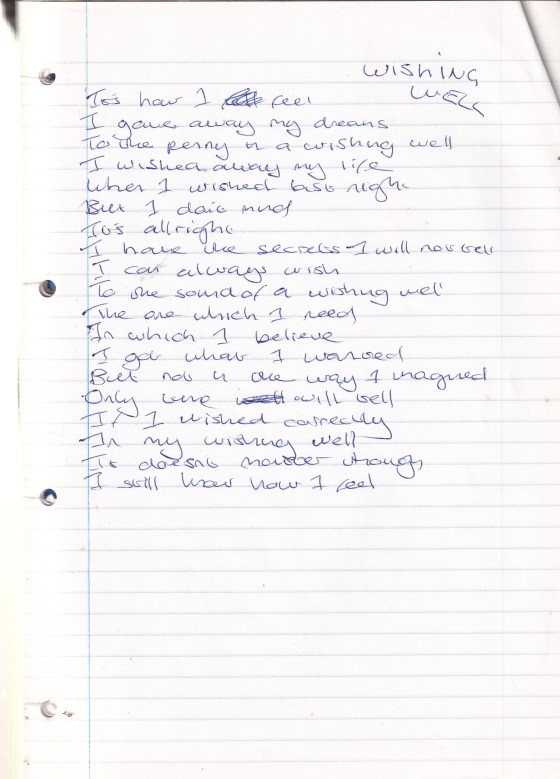 WISHING
WELL
It's how I feel
I gave away my dreams
To the penny in a wishing well
I wished away my life
When I wished last night
But I don't mind
It's allright
I have the secrets I will not tell
I can always wish
To the sound of a wishing well
The one which I need
In which I believe
I got what I wanted
But not in the way I imagined
Only time will tell
If I wished correctly
In my wishing well
It doesn't matter though
I still know how I feel